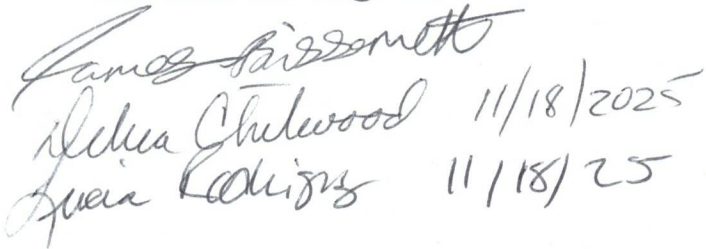 James Bissonette
Debra Chitwood 11/18/2025
Lucia Rodriguez 11/18/25